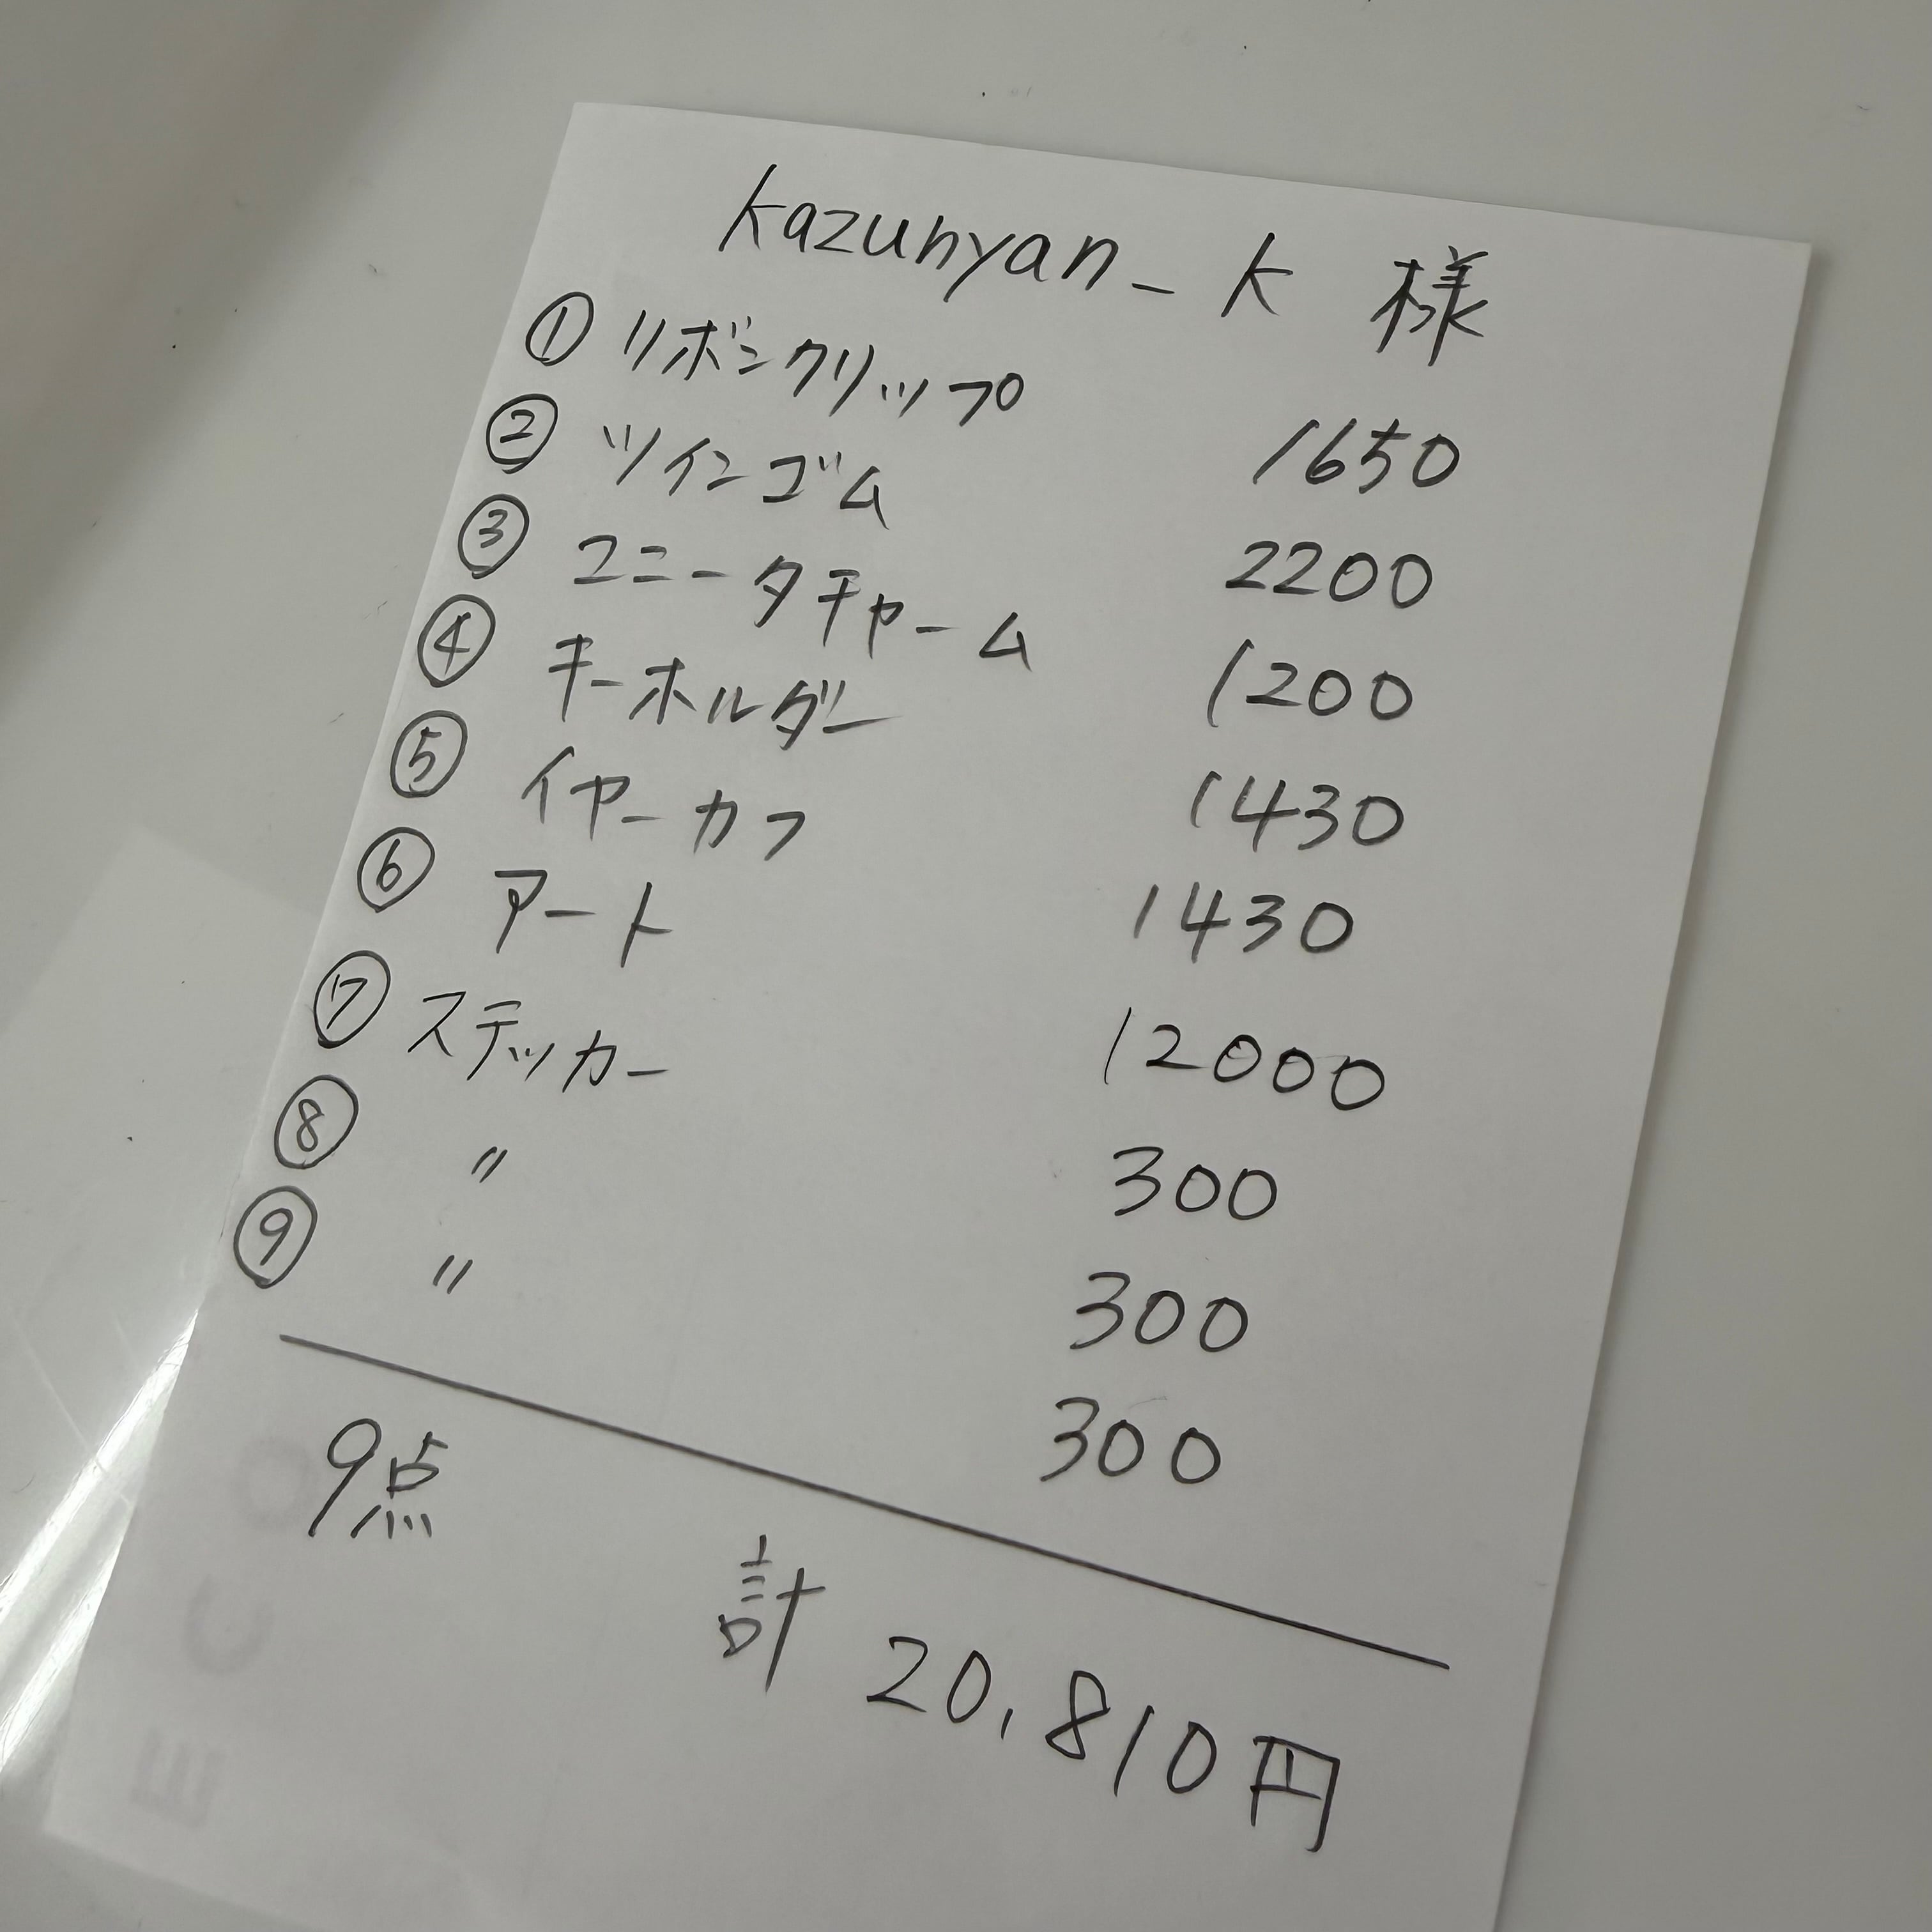 kazunyan_k 様
① リボンクリップ 1650
② ツインゴム 2200
③ ユニータチャーム 1200
④ キーホルダー 1430
⑤ イヤーカフ 1430
⑥ アート 12000
⑦ ステッカー 300
⑧ 〃 300
⑨ 〃 300
9点 計 20,810円
ECO